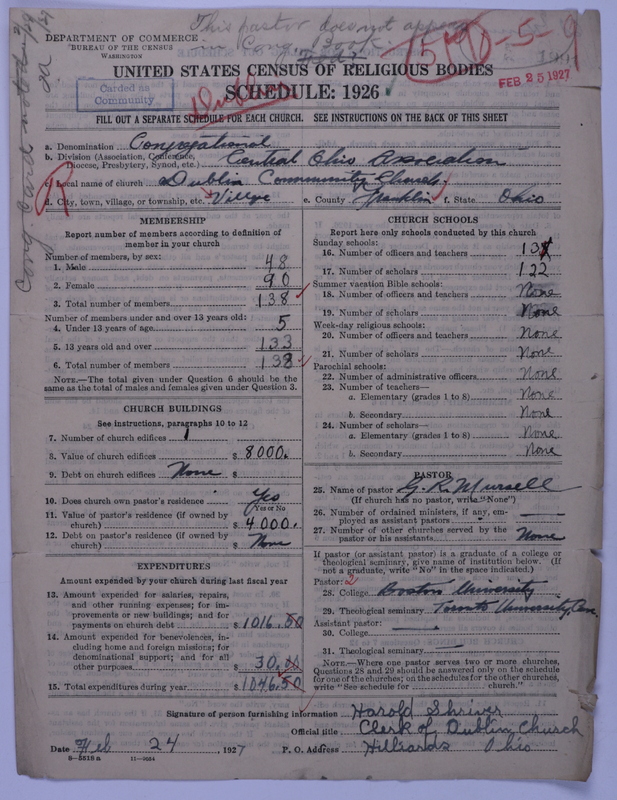 This pastor does not appear
in Cong.
DEPARTMENT OF COMMERCE
BUREAU OF THE CENSUS
WASHINGTON
FEB 25 1927
UNITED STATES CENSUS OF RELIGIOUS BODIES
Carded as
Community
SCHEDULE: 1926
FILL OUT A SEPARATE SCHEDULE FOR EACH CHURCH. SEE INSTRUCTIONS ON THE BACK OF THIS SHEET
a. Denomination Congregational
b. Division (Association, Conference, Diocese, Presbytery, Synod, etc.) Central Ohio Association
c. Local name of church Dublin Community Church
d. City, town, village, or township, etc. Village e. County Franklin f. State Ohio
MEMBERSHIP
Report number of members according to definition of
member in your church
Number of members, by sex:
1. Male 48
2. Female 90
3. Total number of members 138
Number of members under and over 13 years old:
4. Under 13 years of age 5
5. 13 years old and over 133
6. Total number of members 138
NOTE.—The total given under Question 6 should be
same as the total of males and females given under Question 3.
CHURCH BUILDINGS
See instructions, paragraphs 10 to 12
7. Number of church edifices 1
8. Value of church edifices $ 8000.
9. Debt on church edifices None $
10. Does church own pastor's residence Yes
Yes or No
11. Value of pastor's residence (if owned by
church) $ 4000.
12. Debt on pastor's residence (if owned by
church) $ None
EXPENDITURES
Amount expended by your church during last fiscal year
13. Amount expended for salaries, repairs,
and other running expenses; for im-
provements or new buildings; and for
payments on church debt $ 1016.50
14. Amount expended for benevolences, in-
cluding home and foreign missions; for
denominational support; and for all
other purposes $ 30.00
15. Total expenditures during year $ 1046.50
CHURCH SCHOOLS
Report here only schools conducted by this church
Sunday schools:
16. Number of officers and teachers 13
17. Number of scholars 122
Summer vacation Bible schools:
18. Number of officers and teachers None
19. Number of scholars None
Week-day religious schools:
20. Number of officers and teachers None
21. Number of scholars None
Parochial schools:
22. Number of administrative officers None
23. Number of teachers—
a. Elementary (grades 1 to 8) None
b. Secondary None
24. Number of scholars—
a. Elementary (grades 1 to 8) None
b. Secondary None
PASTOR
25. Name of pastor G. R. Mursell
(If church has no pastor, write "None")
26. Number of ordained ministers, if any, em-
ployed as assistant pastors
27. Number of other churches served by the
pastor or his assistants None
If pastor (or assistant pastor) is a graduate of a college or
theological seminary, give name of institution below. (If
not a graduate, write "No" in the space indicated.)
Pastor: 2
28. College Boston University
29. Theological seminary Toronto University, Can.
Assistant pastor:
30. College
31. Theological seminary
NOTE.—Where one pastor serves two or more churches,
Questions 28 and 29 should be answered only on the schedule
for one of the churches; on the schedules for the other churches,
write "See schedule for church."
Signature of person furnishing information Harold Shriver
Official title Clerk of Dublin Church
Date Feb 24, 1927 P. O. Address Hilliards Ohio
8-5518a 11-9084